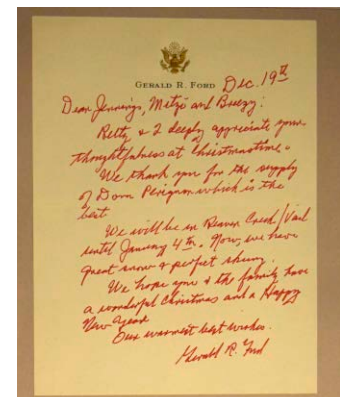 GERALD R. FORD
Dec. 19th
Dear Jennings, Mitzi and Breezy:
Betty & I deeply appreciate your
thoughtfulness at Christmastime.
We thank you for the supply
of Dom Perignon which is the
best.
We will be in Beaver Creek/Vail
until January 4th. Now, we have
great snow & perfect skiing.
We hope you & the family have
a wonderful Christmas and a Happy
New Year.
Our warmest best wishes.
Gerald R. Ford